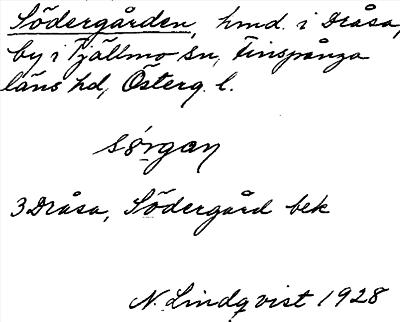 Södergården, hmd. i Dråsa,
by i Tjällmo sn, Finspånga
läns hd, Österg. l.
sørgan
3 Dråsa, Södergård bek
N. Lindqvist 1928